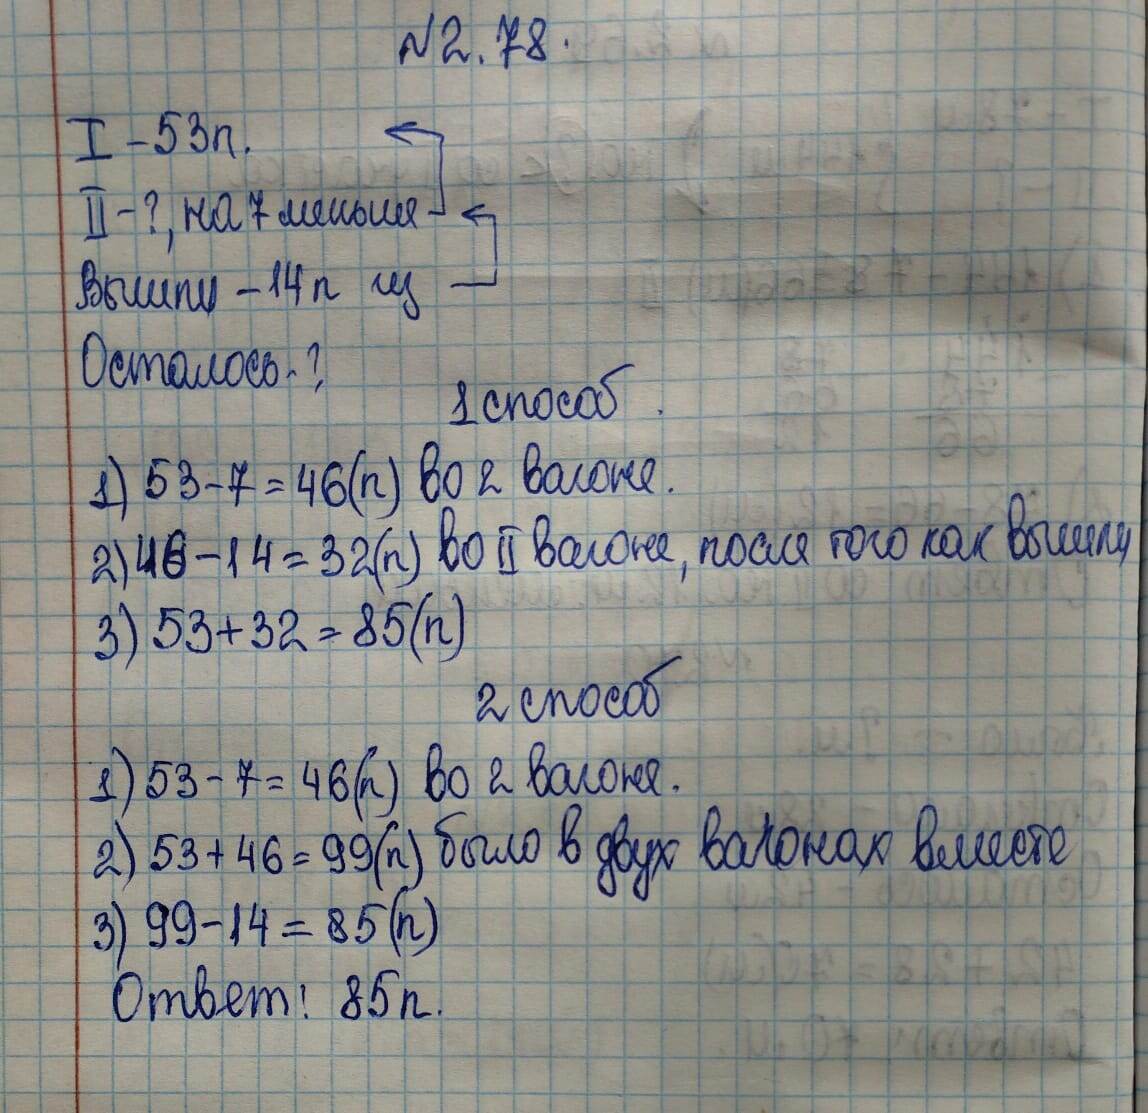 №2.78.
I – 53п.
II – ?, на 7 меньше
Вышли – 14п из
Осталось - ?
1 способ.
1) 53 – 7 = 46(п) во 2 вагоне.
2) 46 – 14 = 32(п) во II вагоне, после того как вышли
3) 53 + 32 = 85(п)
2 способ
1) 53 – 7 = 46(п) во 2 вагоне.
2) 53 + 46 = 99(п) было в двух вагонах вместе
3) 99 – 14 = 85(п)
Ответ: 85п.